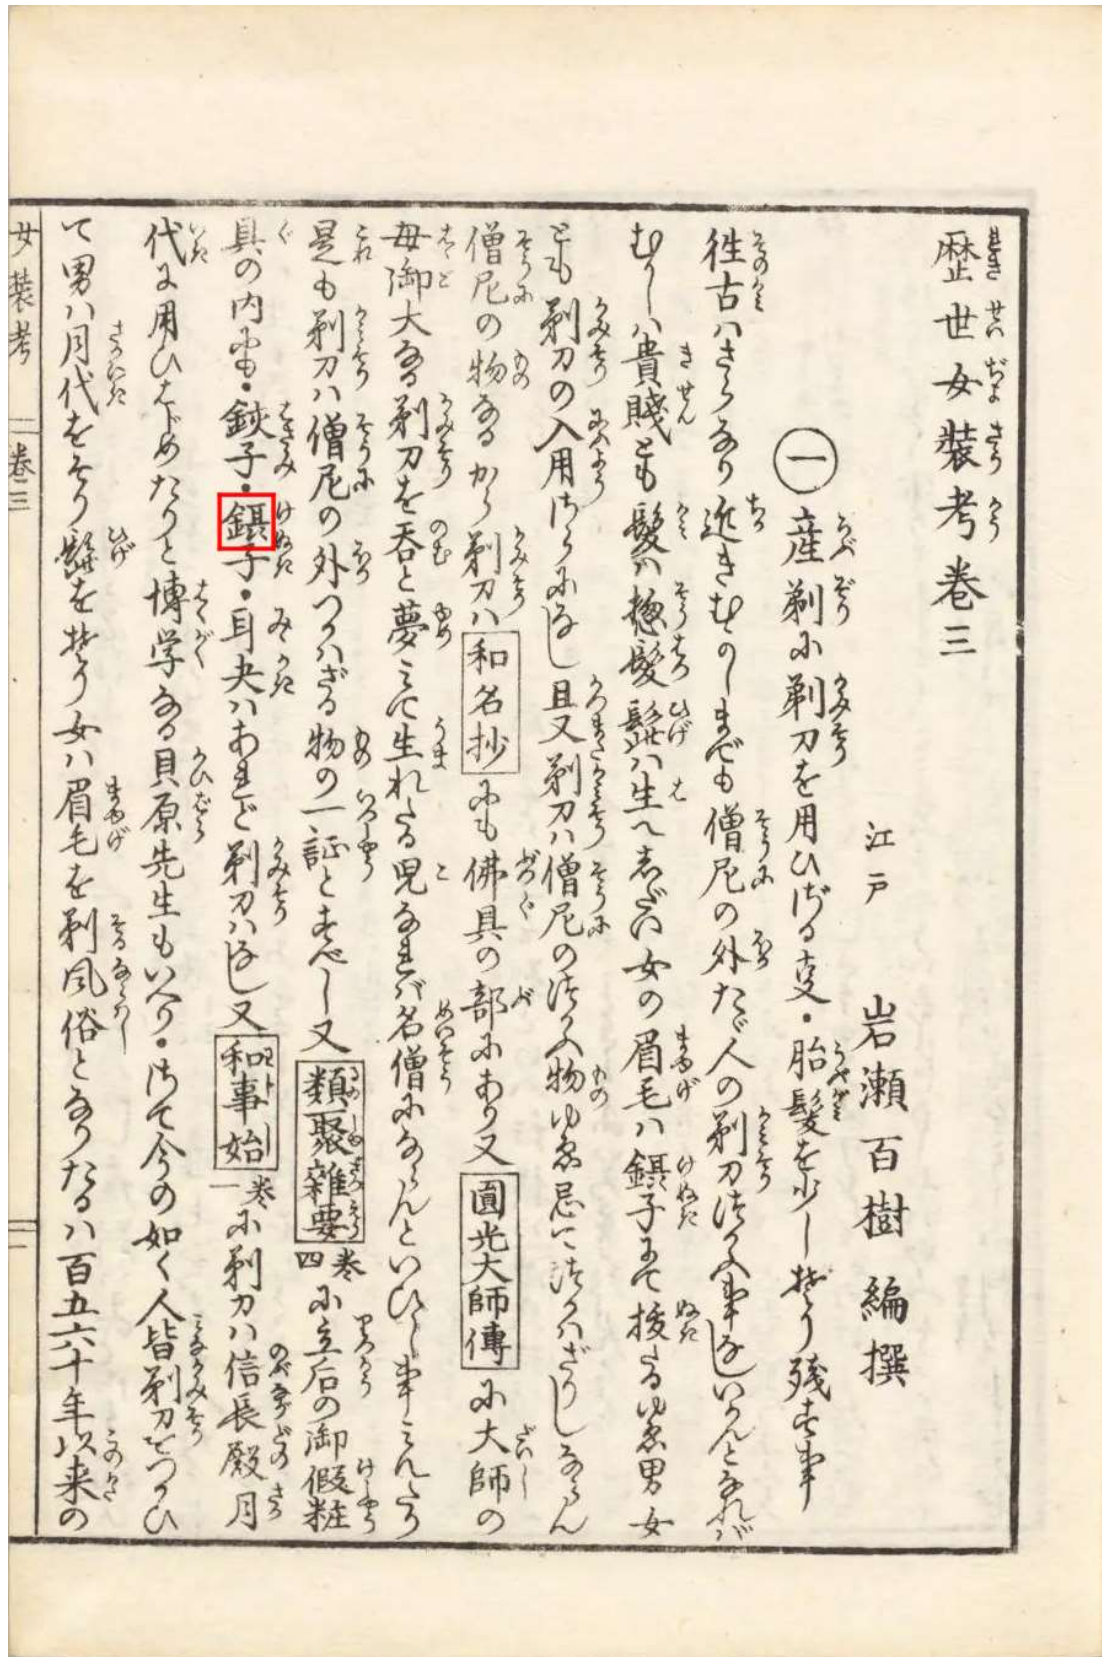 歴世女装考巻三
江戸 岩瀬百樹 編撰
一 産剃に剃刀を用ひざる支・胎髪を少し剃り残す事
徃古はさらなり近きむかしまでも僧尼の外たゞ人の剃刀つかふ事なしいかんとなれば
むかしハ貴賤とも髪ハ惣髪髭ハ生へしだい女の眉毛ハ鑷子にて抜たるゆゑ男女
とも剃刀の入用さらになし且又剃刀ハ僧尼のつかふ物ゆゑ忌てつかハざりしならん
僧尼の物なるから剃刀ハ和名抄にも佛具の部にあり又圓光大師傳に大師の
母御大なる剃刀を呑と夢みて生れたる児なれバ名僧にならんといひし事みえたり
是も剃刀ハ僧尼の外つかハざる物の一証とすべし又類聚雜要巻四に立后の御假粧
具の内にも・鋏子・鑷子・耳夬ハあれど剃刀ハなし又和事始巻一に剃刀ハ信長殿月
代に用ひはじめたりと博学なる貝原先生もいへり・さて今の如く人皆剃刀をつかひ
て男ハ月代をそり髭を剃り女ハ眉毛を剃風俗となりたるハ百五六十年以来の
女装考 巻三 一